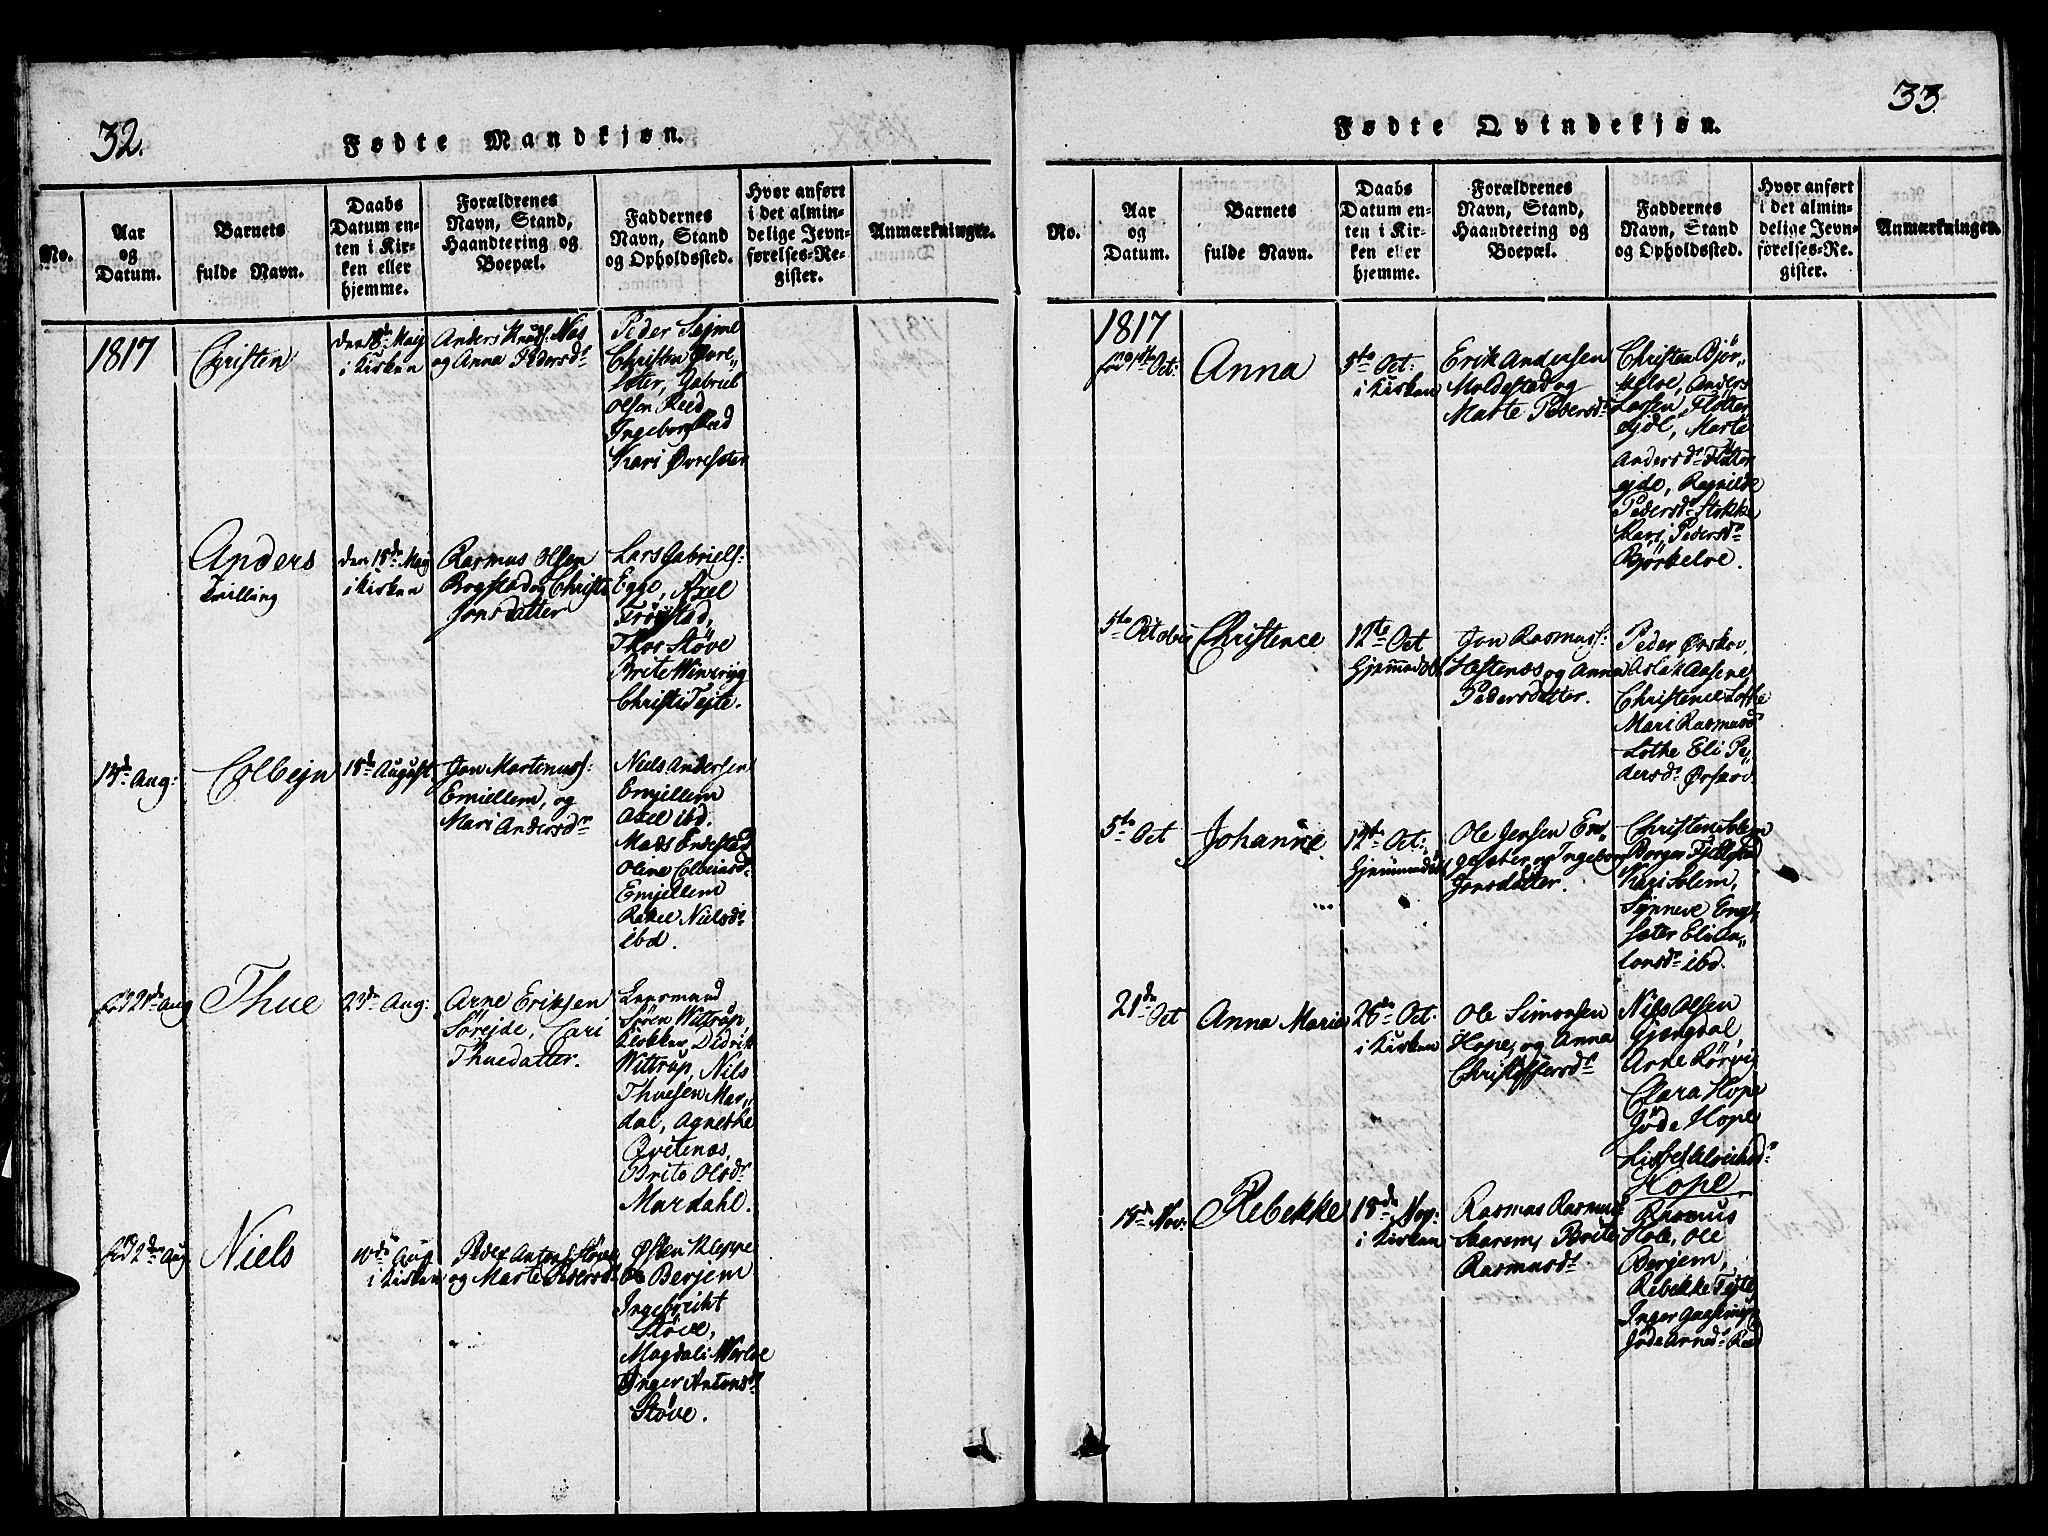 32.
Fødte Mandkjøn.
No.
Aar
og
Datum.
Barnets
fulde Navn.
Daabs
Datum en-
ten i Kir-
ken eller
hjemme.
Forældrenes
Navn, Stand,
Haandtering og
Boepæl.
Faddernes
Navn, Stand
og Opholdssted.
Hvor anført
i det almin-
delige Jevn-
førelses-Re-
gister.
Anmærkninger.
1817
Christen
den 18de Maij
i Kirken
Anders Knuds. Nos
og Anna Pedersdr
Peder Sejme
Christen Øvre„
Sæter, Gabriel
Olsen Reed
Ingeborg Reed
Kari Øvresæter
Anders
Tvilling
den 18de Maij
i Kirken
Rasmus Olsen
Bogstad og Christi
Jonsdatter
Lars Gabriels:
Egge, Axel
Trøystad,
Thos Støve
Brite Winsryg
Christi Tejte.
14de Aug:
Colbejn
18de August
Jon Martinuss:
Emiellem, og
Mari Andersdr
Niels Andersen
Emjellem
Axel ibd.
Mads Endestad
Oline Colbeinsdr
Emjellem
Rakel Nielsdr
ibd.
fød 21de Aug
Thue
23de Aug:
Arne Eriksen
Sørejde, Cari
Thuedatter.
Lensmand
Søren Wittrup
Klokker Didrik
Wittrup, Nils
Thuesen Mar„
dal, Agnethe
Qvitenæs,
Brite Olsdr
Mardahl.
fød 2den Aug
Niels
10de Aug
i Kirken
Peder Antons. Støve
og Marte Pedersdr
Østen Kleppe
Ole Berjem
Ingebricht
Støve,
Magdali Werløe
Inger Antonsdr
Støve.
33
Fødte Qvindekjøn.
No.
Aar
og
Datum.
Barnets
fulde Navn.
Daabs
Datum en-
ten i Kir-
ken eller
hjemme.
Forældrenes
Navn, Stand,
Haandtering og
Boepæl.
Faddernes
Navn, Stand
og Opholdssted.
Hvor anført
i det almin-
delige Jevn-
førelses-Re-
gister.
Anmærkninger.
1817
fød 1ste Oct:
Anna
5te Oct:
i Kirken
Erik Andersen
Moldestad og
Marte Pedersdr
Christen Bjør„
kelve, Anders
Larsen Fløtter
ejde, Marte
Andersdr Fløtter
ejde, Ragnilde
Pedersdr Stokke
Kari Pedersdr
Bjørkelve.
5te Octobr
Christence
12te Oct
Hjemmedøbt
Jon Rasmuss:
Hestenæs og Anna
Pedersdatter.
Peder Ørskov
Aslak Aasene
Christence Lothe
Mari Rasmusdr
Lothe Eli Pe„
dersdr
5te Oct
Johanne
12te Oct:
Hjemmedøbt
Ole Jensen Eng„
sæter og Ingeborg
Jonsdatter.
Christen Solem
Borger Fjellestad
Kari Solem,
Synneve Eng„
sæter Eli An„
tonsdr ibd.
21de Oct
Anna Marie
26de Oct:
i Kirken
Ole Simonsen
Hope, og Anna
Christoffersdr
Nils Olsen
Gjengdal,
Arne Rørvig
Clara Hope
Jøde Hope
Lisbet Alvichsdr
Hope.
14de Nov:
Rebekke
18de Nov:
i Kirken
Rasmus Rasmuss
Skarem, Brite
Rasmusdr
Rasmus
Hole, Ole
Berjem,
Rebekke Tejte,
Inger
Jøde Arnedr Reed